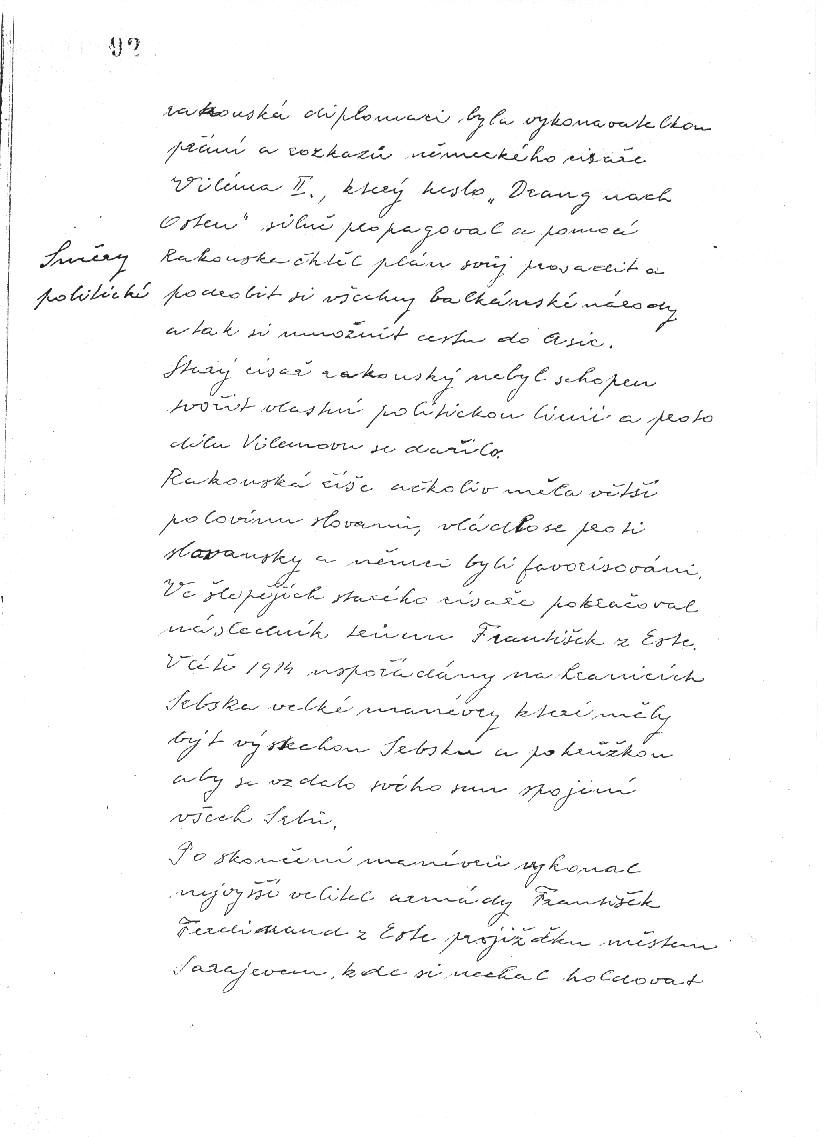 92
rakouská diplomaci byla vykonavatelkou
přání a rozkazů německého císaře
Viléma II., který heslo „Drang nach
Osten" silně propagoval a pomocí
Směry
politické
Rakouska chtěl plán svůj prosadit a
podrobit si všechny balkánské národy
a tak si umožnit cestu do Asie.
Starý císař rakouský nebyl schopen
tvořit vlastní politickou linii a proto
dílu Vilemovu se dařilo.
Rakouská říše ačkoliv měla větší
polovinu slovanů, vládlo se proti
slovansky a němci byli favorisováni.
Ve šlepějích starého císaře pokračoval
následník trůnu František z Este.
V létě 1914 uspořádány na hranicích
Srbska velké manévry které měly
být výstrahou Srbsku a pohrůžkou
aby se vzdalo svého snu spojení
všech Srbů.
Po skončení manévrů vykonal
nejvyšší velitel armády František
Ferdinand z Este projížďku městem
Sarajevem, kde si nechal holdovat